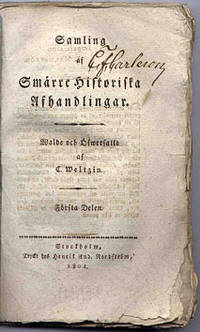 Samling
af
Smärre Historiska
Afhandlingar.
Walde och Öfwersatte
af
C. Weltzin.
Första Delen.
Stockholm,
Tryckt hos Henrik And. Nordström,
1802.